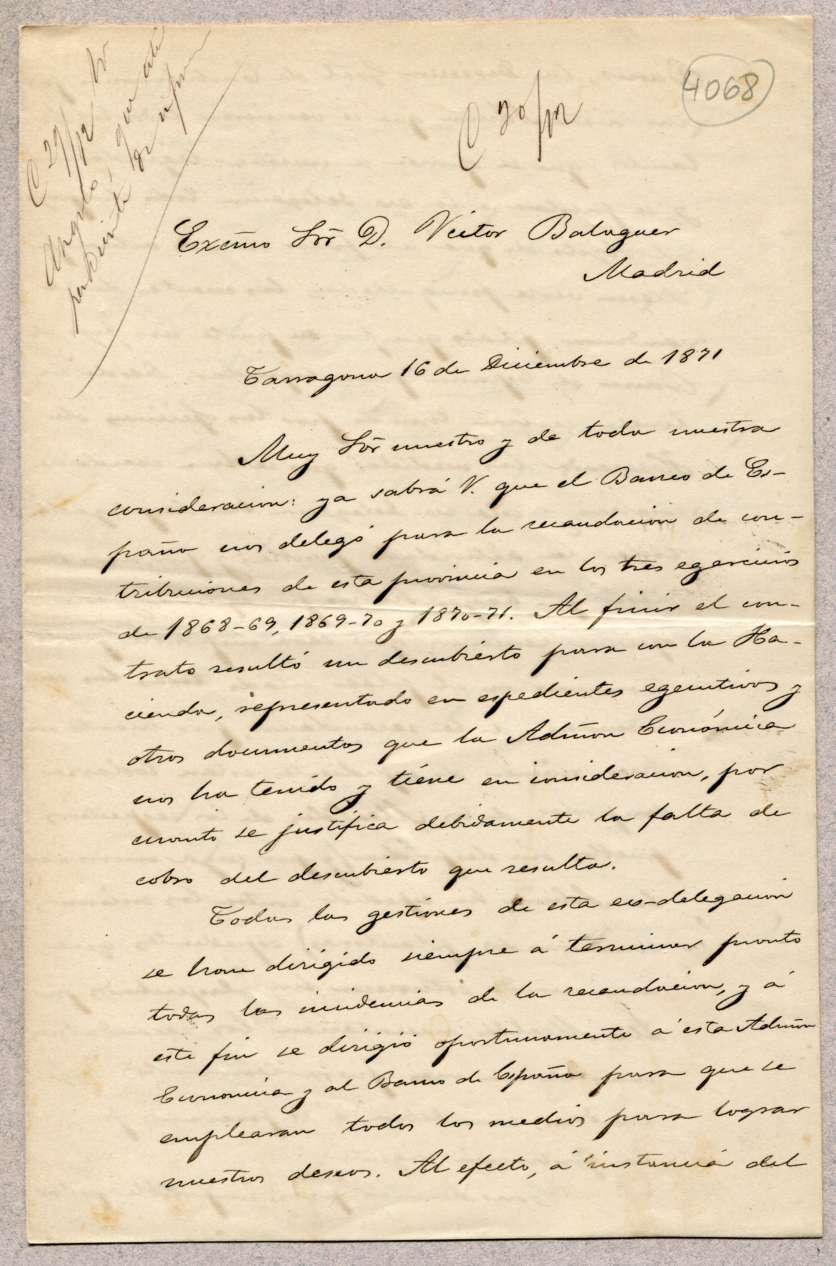 C 29/12
Angulo, que está
pendiente de
C 20/12
4068
Excmo Sor D. Victor Balaguer
Madrid
Tarragona 16 de Diciembre de 1871
Muy Sor nuestro y de toda nuestra
consideracion: ya sabrá V. que el Banco de Es-
paña nos delegó para la recaudacion de con-
tribuciones de esta provincia en los tres egercicios
de 1868-69, 1869-70 y 1870-71. Al finir el con-
trato resultó un descubierto para con la Ha-
cienda, representado en espedientes egecutivos y
otros documentos que la Admon Económica
nos ha tenido y tiene en consideracion, por
cuanto se justifica debidamente la falta de
cobro del descubierto que resulta.
Todas las gestiones de esta ex-delegacion
se han dirigido siempre á terminar pronto
todas las incidencias de la recaudacion, y á
este fin se dirigió oportunamente á esta Admon
Economica y al Banco de España para que se
emplearan todos los medios para lograr
nuestros deseos. Al efecto, á instancia del